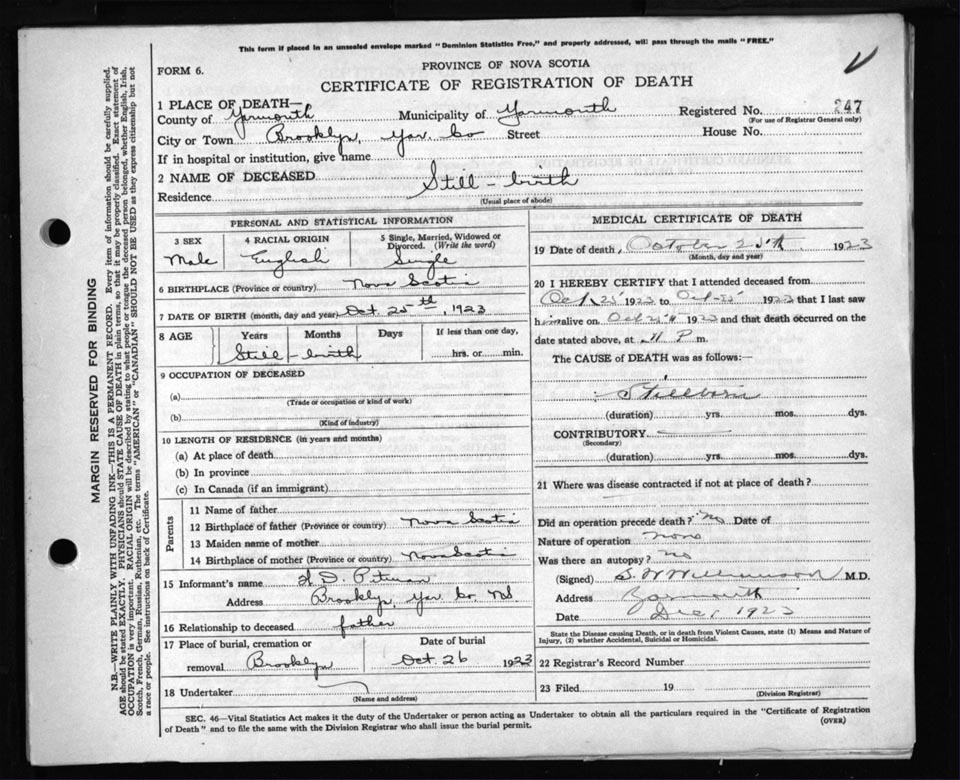 This form if placed in an unsealed envelope marked "Dominion Statistics Free," and properly addressed, will pass through the mails "FREE."
PROVINCE OF NOVA SCOTIA
FORM 6.
CERTIFICATE OF REGISTRATION OF DEATH
1 PLACE OF DEATH—
County of Yarmouth Municipality of Yarmouth Registered No. 247
(For use of Registrar General only)
City or Town Brooklyn, Yar. Co Street House No.
If in hospital or institution, give name
2 NAME OF DECEASED Still-birth
Residence
(Usual place of abode)
PERSONAL AND STATISTICAL INFORMATION
3 SEX 4 RACIAL ORIGIN 5 Single, Married, Widowed or
Divorced. (Write the word)
Male English Single
6 BIRTHPLACE (Province or country) Nova Scotia
7 DATE OF BIRTH (month, day and year) Oct. 25th, 1923
8 AGE Years Months Days If less than one day,
Still-birth hrs. or min.
9 OCCUPATION OF DECEASED
(a)
(Trade or occupation or kind of work)
(b)
(Kind of industry)
10 LENGTH OF RESIDENCE (in years and months)
(a) At place of death
(b) In province
(c) In Canada (if an immigrant)
Parents
11 Name of father
12 Birthplace of father (Province or country) Nova Scotia
13 Maiden name of mother
14 Birthplace of mother (Province or country) Nova Scotia
15 Informant's name H. D. Pitman
Address Brooklyn, Yar. Co. NS.
16 Relationship to deceased father
17 Place of burial, cremation or Date of burial
removal Brooklyn Oct. 26 1923
18 Undertaker
(Name and address)
MEDICAL CERTIFICATE OF DEATH
19 Date of death, October 25th 1923
(Month, day and year)
20 I HEREBY CERTIFY that I attended deceased from
Oct 25 1923 to Oct 25 1923 that I last saw
him alive on Oct 25th 1923 and that death occurred on the
date stated above, at 11 P m.
The CAUSE OF DEATH was as follows:—
Stillborn
(duration) yrs. mos. dys.
CONTRIBUTORY
(Secondary)
(duration) yrs. mos. dys.
21 Where was disease contracted if not at place of death?
Did an operation precede death? No Date of
Nature of operation None
Was there an autopsy? No
(Signed) S. W. Williamson M.D.
Address Yarmouth
Date Dec, 1923
State the Disease causing Death, or in death from Violent Causes, state (1) Means and Nature of
Injury, (2) whether Accidental, Suicidal or Homicidal.
22 Registrar's Record Number
23 Filed 19
(Division Registrar)
SEC. 46—Vital Statistics Act makes it the duty of the Undertaker or person acting as Undertaker to obtain all the particulars required in the "Certificate of Registration
of Death" and to file the same with the Division Registrar who shall issue the burial permit. (OVER)
MARGIN RESERVED FOR BINDING
N.B.—WRITE PLAINLY WITH UNFADING INK—THIS IS A PERMANENT RECORD. Every item of information should be carefully supplied.
AGE should be stated EXACTLY. PHYSICIANS should STATE CAUSE OF DEATH in plain terms, so that it may be properly classified. Exact statement of
OCCUPATION is very important. RACIAL ORIGIN will be described by stating to what people or tongue the deceased person belonged, whether English, Irish,
Scotch, French, German, Russian, Ruthenian, etc. The terms "AMERICAN" or "CANADIAN" SHOULD NOT BE USED as they express citizenship but not
a race or people. See instructions on back of Certificate.